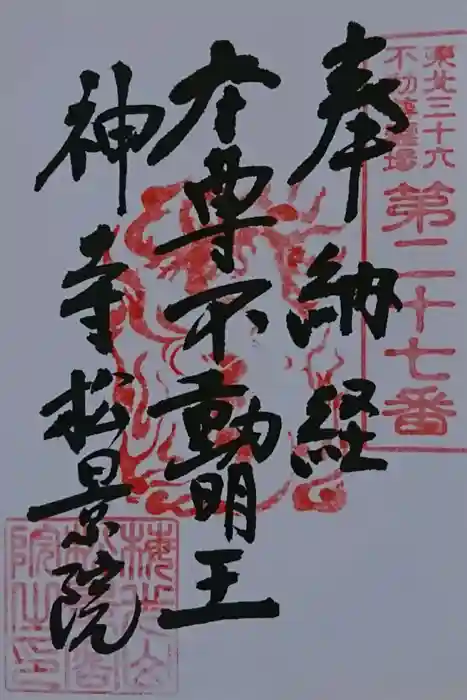 東北三十六
不動尊霊場
第二十七番
奉納経
本尊不動明王
神寺松景院